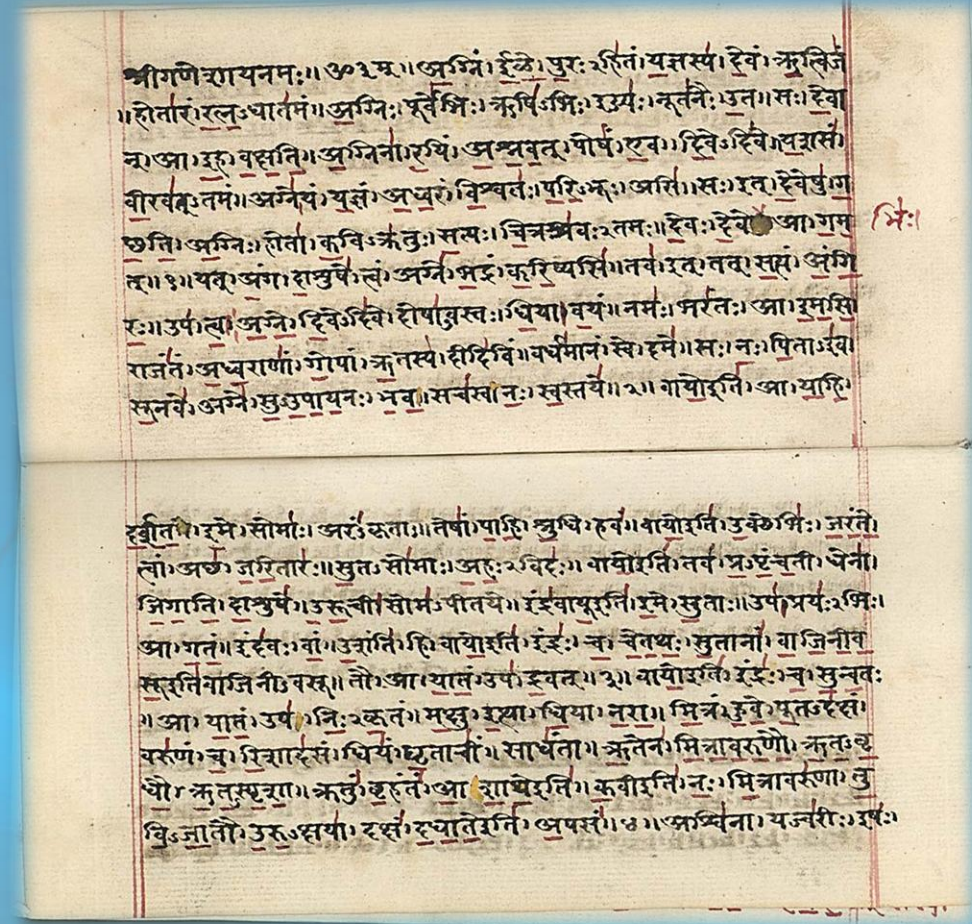 श्रीगणेशायनमः॥ॐ३म्॥अग्निं।ईळे।पुरःऽहितं।यज्ञस्य।देवं।ऋत्विजं
॥होतारं।रत्नऽधातमं॥अग्निः।पूर्वेभिः।ऋषिऽभिः।ईड्यः।नूतनैः।उत॥सः।देवा
न्।आ।इह।वक्षति॥अग्निना।रयिं।अश्नवत्।पोषं।एव।दिवेऽदिवे॥यशसं
वीरवत्ऽतमं॥अग्ने।यं।यज्ञं।अध्वरं।विश्वतः।परिऽभूः।असि॥सः।इत्।देवेषु।ग
छति।अग्निः।होता।कविऽक्रतुः।सत्यः।चित्रश्रवःऽतमः॥देवः।देवे आ।गम
भिः।
त्॥१॥यत्।अंग।दाशुषे।त्वं।अग्ने।भद्रं।करिष्यसि॥तव।इत्।तत्।सत्यं।अंगि
रः॥उप।त्वा।अग्ने।दिवेऽदिवे।दोषाऽवस्तः।धिया।वयं॥नमः।भरंतः।आ।इमसि
राजंतं।अध्वराणां।गोपां।ऋतस्य।दीदिविं॥वर्धमानं।स्वे।दमे॥सः।नः।पिताऽइव
सूनवे।अग्ने।सुऽउपायनः।भव॥सचस्व।नः।स्वस्तये॥२॥वायोइति।आ।याहि
दर्शत।इमे।सोमाः।अरंऽकृताः॥तेषां।पाहि।श्रुधि।हवं॥वायोइति।उक्थेभिः।जरंते
त्वां।अछ।जरितारः॥सुतऽसोमाः।अहःऽविदः॥वायोइति।तव।प्रऽपृंचती।धेना।
जिगाति।दाशुषे॥उरूची।सोमऽपीतये॥इंद्रवायूइति।इमे।सुताः॥उप।प्रयःऽभिः।
आ।गतं॥इंदवः।वां।उशंति।हि॥वायोइति।इंद्रः।च।चेतथः।सुतानां।वाजिनीव
सूइतिवाजिनीऽवसू॥तौ।आ।यातं।उप।द्रवत्॥३॥वायोइति।इंद्रः।च।सुन्वतः
॥आ।यातं।उप।निःऽकृतं॥मक्षु।इत्था।धिया।नरा॥मित्रं।हुवे।पूतऽदक्षं।
वरुणं।च।रिशादसं॥धियं।घृताचीं।साधंता॥ऋतेन।मित्रावरुणौ।ऋतऽवृ
धौ।ऋतऽस्पृशा॥क्रतुं।बृहंतं।आशाथेइति॥कवीइति।नः।मित्रावरुणा।तु
विऽजातौ।उरुऽक्षया।दक्षं।दधातेइति।अपसं॥४॥अश्विना।यज्वरीः।इषः।